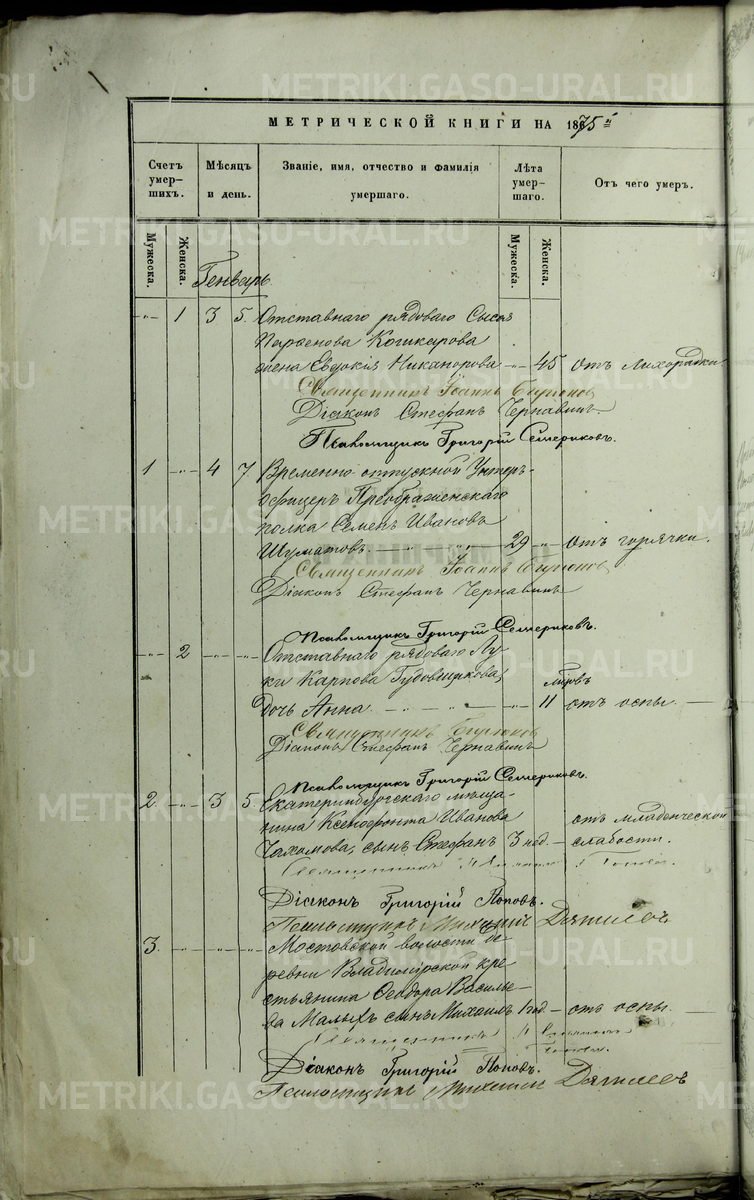 МЕТРИЧЕСКОЙ КНИГИ НА 1875
Счетъ умер-шихъ.
Мѣсяцъ и день.
Званіе, имя, отчество и фамилія умершаго.
Лѣта умер-шаго.
Отъ чего умеръ.
Мужеска.
Женска.
Мужеска.
Женска.
Генварь
1 3 5. Отставнаго рядоваго Сысоя
жена Евдокія Никанорова 45 отъ лихорадки.
Священникъ Іоаннъ
Діаконъ Стефанъ Чернавинъ.
Псаломщикъ Григорій Семериковъ.
1 4 7. Временно-отпускной Унтеръ-
офицеръ Преображенскаго
полка Семенъ Ивановъ
Шуматовъ. 29 отъ горячки.
Священникъ Іоаннъ
Діаконъ Стефанъ Чернавинъ
Псаломщикъ Григорій Семериковъ.
2 Отставнаго рядоваго Лу-
ки Карпова
дочь Анна 11 отъ оспы.
Священникъ
Діаконъ Стефанъ Чернавинъ
Псаломщикъ Григорій Семериковъ.
2. 3 5. Екатеринбургскаго мѣща-
нина Ксенофонта Иванова
сынъ Стефанъ 3 нед. отъ младенческой
слабости.
Священникъ
Діаконъ Григорій Поповъ.
Псаломщикъ Михаилъ
3. Мостовской волости де-
ревни Владимірской кре-
стьянина Ѳеодора Василь-
ева Малыхъ сынъ Михаилъ 1 год. отъ оспы.
Священникъ
Діаконъ Григорій Поповъ.
Псаломщикъ Михаилъ
METRIKI.GASO-URAL.RU